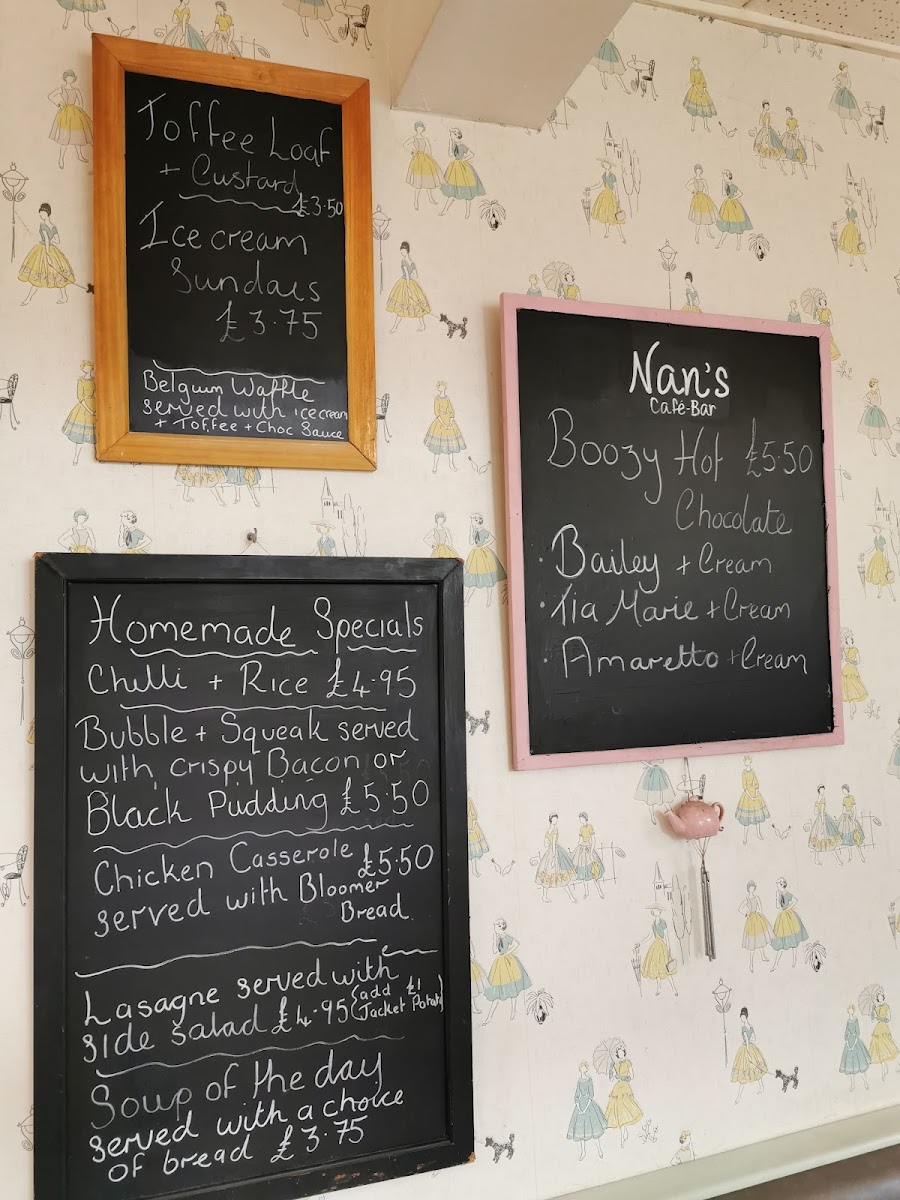 Toffee Loaf
+ Custard
£3.50
Ice cream
Sundaes
£3.75
Belgium Waffle
served with icecream
+ Toffee + Choc Sauce
Nan's
Café-Bar
Boozy Hot £5.50
Chocolate
• Bailey + Cream
• Tia Marie + Cream
• Amaretto + Cream
Homemade Specials
Chilli + Rice £4.95
Bubble + Squeak served
with crispy Bacon or
Black Pudding £5.50
Chicken Casserole £5.50
served with Bloomer
Bread
Lasagne served with
side salad £4.95 (add £1
Jacket Potato)
Soup of the day
served with a choice
of bread £3.75